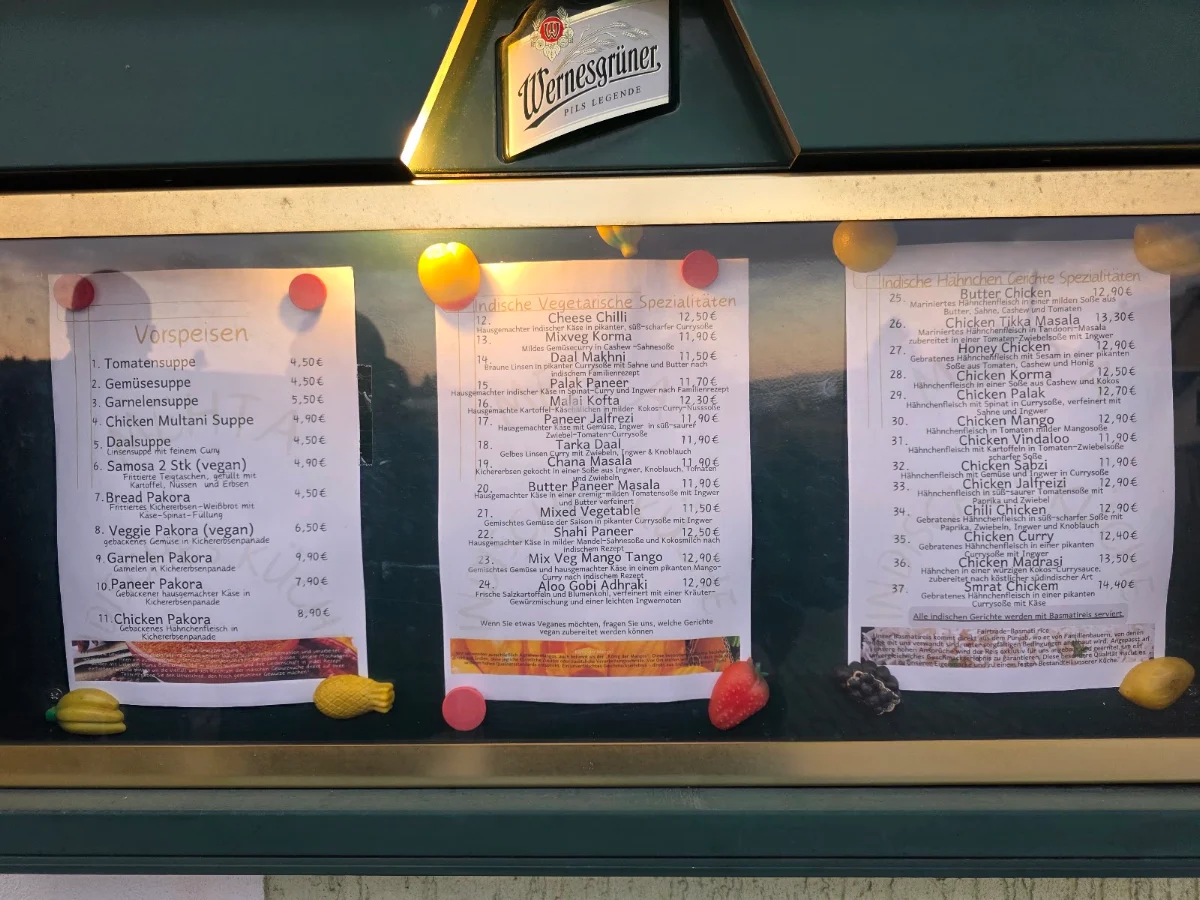 Wernesgrüner
PILS LEGENDE
Vorspeisen
1. Tomatensuppe 4,50€
2. Gemüsesuppe 4,50€
3. Garnelensuppe 5,50€
4. Chicken Multani Suppe 4,90€
5. Daalsuppe 4,50€
Linsensuppe mit feinem Curry
6. Samosa 2 Stk (vegan) 4,90€
Frittierte Teigtaschen, gefüllt mit
Kartoffel, Nüssen und Erbsen
7. Bread Pakora 4,50€
Frittiertes Kichererbsen-Weißbrot mit
Käse-Spinat-Füllung
8. Veggie Pakora (vegan) 6,50€
gebackenes Gemüse in Kichererbsenpanade
9. Garnelen Pakora 9,90€
Garnelen in Kichererbsenpanade
10. Paneer Pakora 7,90€
Gebackener hausgemachter Käse in
Kichererbsenpanade
11. Chicken Pakora 8,90€
Gebackenes Hähnchenfleisch in
Kichererbsenpanade
Indische Vegetarische Spezialitäten
12. Cheese Chilli 12,50€
Hausgemachter indischer Käse in pikanter, süß-scharfer Currysoße
13. Mixveg Korma 11,90€
Mildes Gemüsecurry in Cashew -Sahnesoße
14. Daal Makhni 11,50€
Braune Linsen in pikanter Currysoße mit Sahne und Butter nach
indischem Familienrezept
15. Palak Paneer 11,70€
Hausgemachter indischer Käse in Spinat-Curry und Ingwer nach Familienrezept
16. Malai Kofta 12,30€
Hausgemachte Kartoffel-Käsebällchen in milder Kokos-Curry-Nusssoße
17. Paneer Jalfrezi 11,90€
Hausgemachter Käse mit Gemüse, Ingwer in süß-saurer
Zwiebel-Tomaten-Currysoße
18. Tarka Daal 11,90€
Gelbes Linsen Curry mit Zwiebeln, Ingwer & Knoblauch
19. Chana Masala 11,90€
Kichererbsen gekocht in einer Soße aus Ingwer, Knoblauch, Tomaten
und Zwiebeln
20. Butter Paneer Masala 11,90€
Hausgemachter Käse in einer cremig-milden Tomatensoße mit Ingwer
und Butter verfeinert
21. Mixed Vegetable 11,50€
Gemischtes Gemüse der Saison in pikanter Currysoße mit Ingwer
22. Shahi Paneer 12,50€
Hausgemachter Käse in milder Mandel-Sahnesoße und Kokosmilch nach
indischem Rezept
23. Mix Veg Mango Tango 12,90€
Gemischtes Gemüse und hausgemachter Käse in einem pikanten Mango-
Curry nach indischem Rezept
24. Aloo Gobi Adhraki 12,90€
Frische Salzkartoffeln und Blumenkohl, verfeinert mit einer Kräuter-
Gewürzmischung und einer leichten Ingwernoten
Wenn Sie etwas Veganes möchten, fragen Sie uns, welche Gerichte
vegan zubereitet werden können
Indische Hähnchen Gerichte Spezialitäten
25. Butter Chicken 12,90€
Mariniertes Hähnchenfleisch in einer milden Soße aus
Butter, Sahne, Cashew und Tomaten
26. Chicken Tikka Masala 13,30€
Mariniertes Hähnchenfleisch in Tandoori-Masala
zubereitet in einer Tomaten-Zwiebelsoße mit Ingwer
27. Honey Chicken 12,90€
Gebratenes Hähnchenfleisch mit Sesam in einer pikanten
Soße aus Tomaten, Cashew und Honig
28. Chicken Korma 12,90€
Hähnchenfleisch in einer Soße aus Cashew und Kokos
29. Chicken Palak 12,70€
Hähnchenfleisch mit Spinat in Currysoße, verfeinert mit
Sahne und Ingwer
30. Chicken Mango 12,90€
Hähnchenfleisch in Tomaten milder Mangosoße
31. Chicken Vindaloo 11,90€
Hähnchenfleisch mit Kartoffeln in Tomaten-Zwiebelsoße
scharfer Soße
32. Chicken Sabzi 11,90€
Hähnchenfleisch mit Gemüse und Ingwer in Currysoße
33. Chicken Jalfreizi 12,90€
Hähnchenfleisch in süß-saurer Tomatensoße mit
Paprika und Zwiebel
34. Chili Chicken 12,90€
Gebratenes Hähnchenfleisch in süß-scharfer Soße mit
Paprika, Zwiebeln, Ingwer und Knoblauch
35. Chicken Curry 12,40€
Gebratenes Hähnchenfleisch in einer pikanten
Currysoße mit Ingwer
36. Chicken Madrasi 13,50€
Hähnchen in einer würzigen Kokos-Currysauce,
zubereitet nach köstlicher südindischer Art
37. Smrat Chickem 14,40€
Gebratenes Hähnchenfleisch in einer pikanten
Currysoße mit Käse
Alle indischen Gerichte werden mit Basmatireis serviert.
Fairtrade-Basmati rice